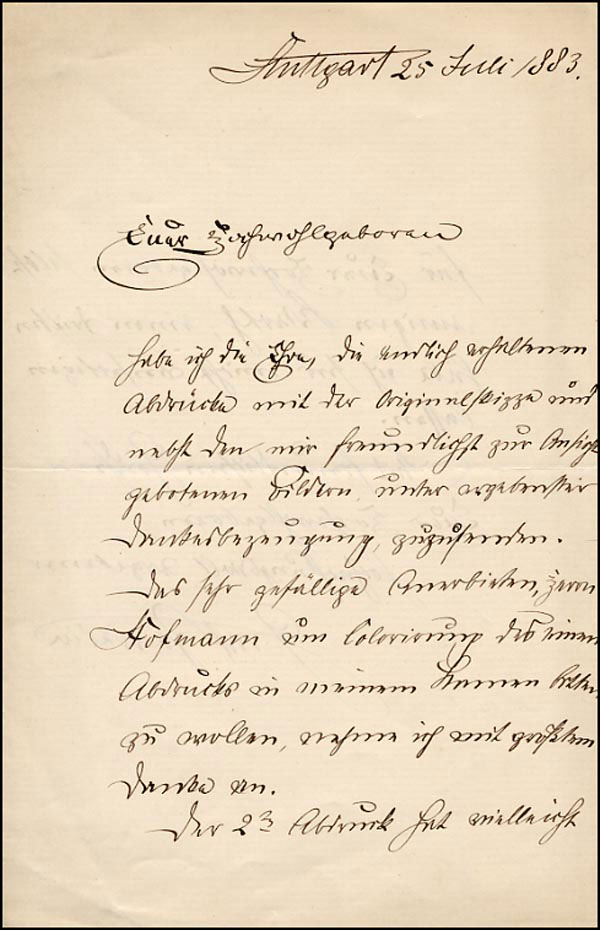 Stuttgart 25 Juli 1883.
Euer Hochwohlgeboren
habe ich die Ehre, die endlich erhaltenen
Abdrücke mit der Originalskizze und
nebst den mir freundlichst zur Ansicht
gebotenen Bildern, unter ergebenster
Dankesbezeugung, zuzusenden.
Das sehr gefällige Anerbieten, Herrn
Hofmann um Colorirung des einen
Abdrucks in meinem Namen bitten
zu wollen, nehme ich mit größtem
Danke an.
Der 2te Abdruck hat vielleicht